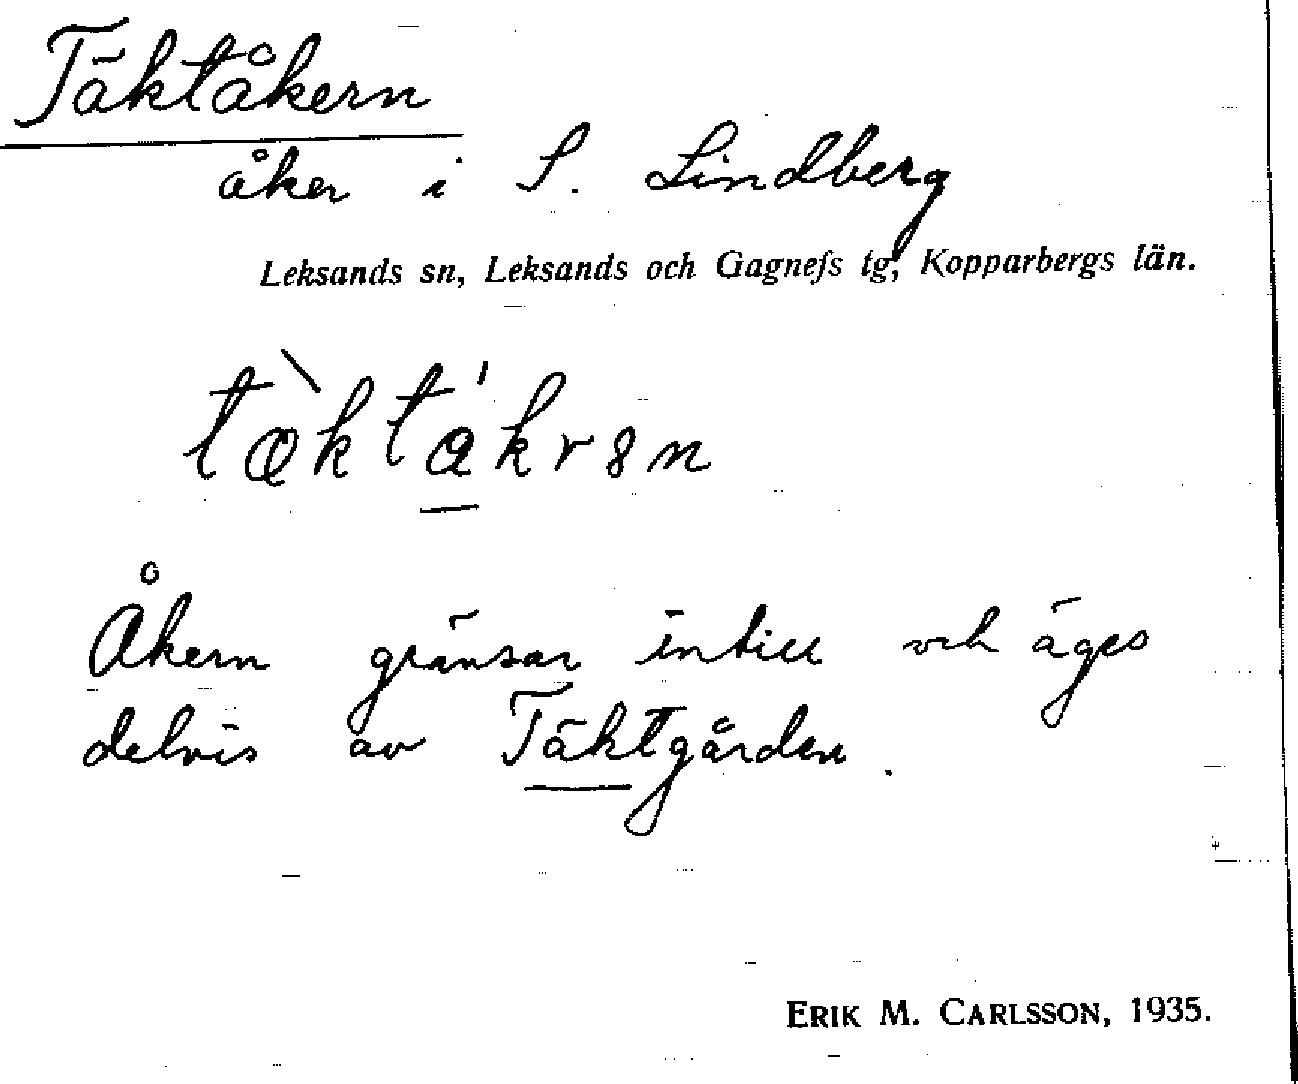 Täktåkern
åker i S. Lindberg
Leksands sn, Leksands och Gagnefs tg, Kopparbergs län.
Åkern gränsar intill och äges
delvis av Täktgården.
ERIK M. CARLSSON, 1935.